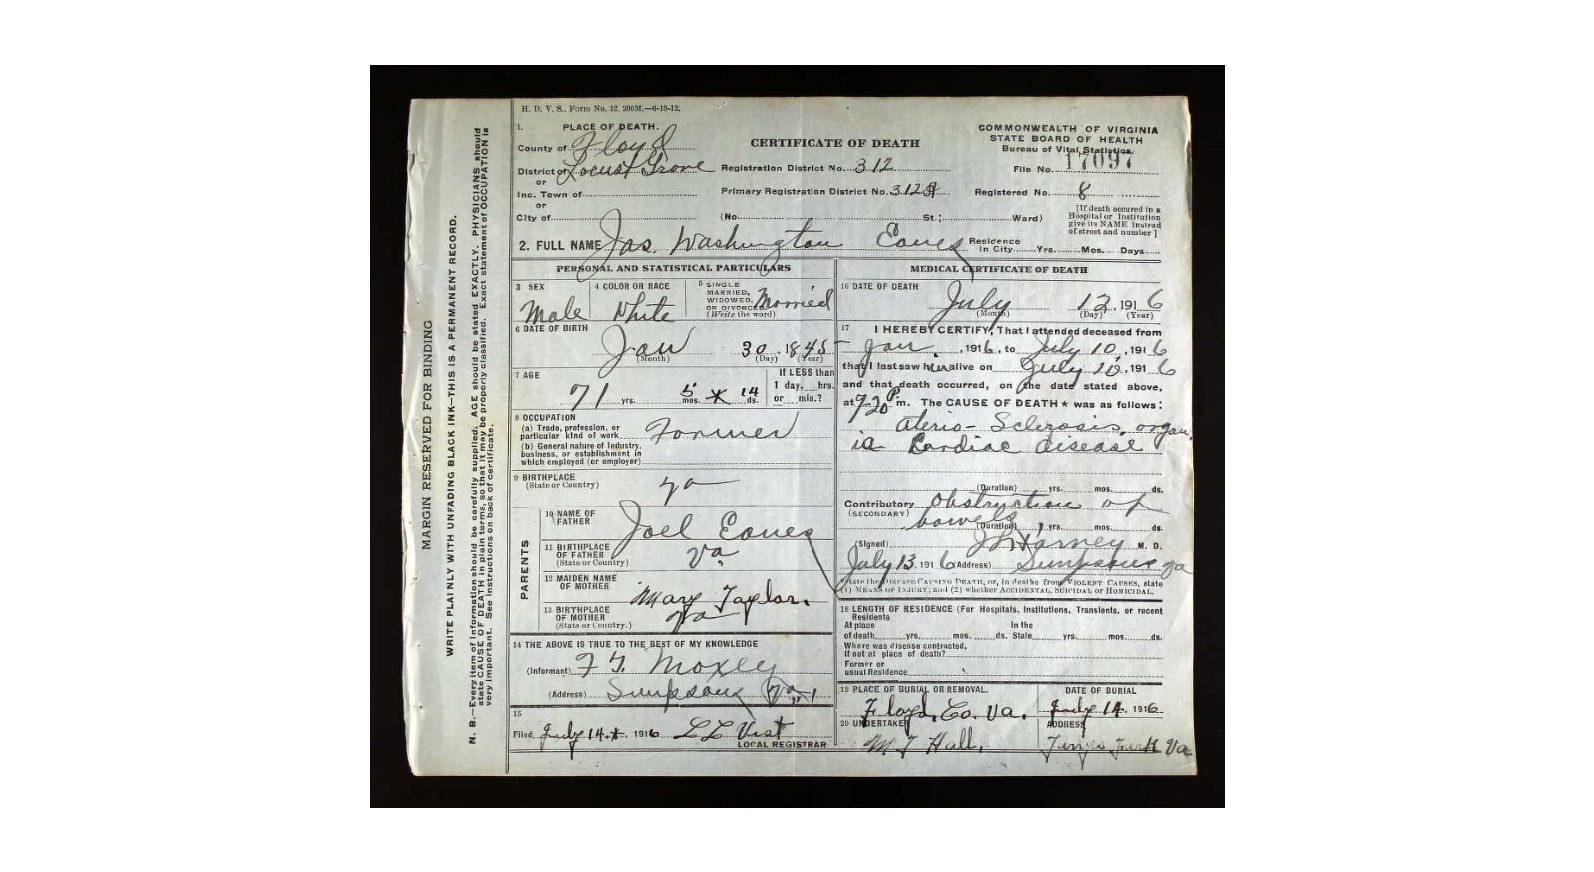 H. D. V. S., Form No. 12, 200M.—6-15-12.
1. PLACE OF DEATH.
County of Floyd
District of Locust Grove
or
Inc. Town of
or
City of
CERTIFICATE OF DEATH
Registration District No. 312
Primary Registration District No. 312
(No. St.; Ward)
COMMONWEALTH OF VIRGINIA
STATE BOARD OF HEALTH
Bureau of Vital Statistics
File No. 17097
Registered No. 8
[If death occured in a
Hospital or Institution
give its NAME instead
of street and number]
2. FULL NAME Jas. Washington Eanes
Residence
In City Yrs. Mos. Days
PERSONAL AND STATISTICAL PARTICULARS
3 SEX
Male
4 COLOR OR RACE
White
5 SINGLE
MARRIED,
WIDOWED,
OR DIVORCED
(Write the word)
Married
6 DATE OF BIRTH
Jan 30, 1845
(Month) (Day) (Year)
7 AGE
71 yrs. 5 mos. 14 ds.
If LESS than
1 day, hrs.
or min.?
8 OCCUPATION
(a) Trade, profession, or
particular kind of work Farmer
(b) General nature of Industry,
business, or establishment in
which employed (or employer)
9 BIRTHPLACE
(State or Country) Va
PARENTS
10 NAME OF
FATHER Joel Eanes
11 BIRTHPLACE
OF FATHER
(State or Country) Va
12 MAIDEN NAME
OF MOTHER Mary Taylor.
13 BIRTHPLACE
OF MOTHER
(State or Country.) Va
14 THE ABOVE IS TRUE TO THE BEST OF MY KNOWLEDGE
(Informant) F G. Moxley
(Address) Simpsons Va
15
Filed July 14, 1916 L L Vest
LOCAL REGISTRAR
MEDICAL CERTIFICATE OF DEATH
16 DATE OF DEATH
July 12, 1916
(Month) (Day) (Year)
17 I HEREBY CERTIFY, That I attended deceased from
Jan, 1916, to July 10, 1916
that I last saw him alive on July 10, 1916
and that death occurred, on the date stated above,
at 7-20 P m. The CAUSE OF DEATH ★ was as follows:
Aterio-Sclerosis, organ
ic Cardiac disease
(Duration) yrs. mos. ds.
Contributory Obstruction of
(SECONDARY) bowels
(Duration) yrs. mos. ds.
(Signed) Harney M. D.
July 13, 1916 (Address) Simpsons Va
State the DISEASE CAUSING DEATH, or, in deaths from VIOLENT CAUSES, state
(1) MEANS OF INJURY; and (2) whether ACCIDENTAL, SUICIDAL or HOMICIDAL.
18 LENGTH OF RESIDENCE (For Hospitals, Institutions, Transients, or recent
Residents
At place In the
of death yrs. mos. ds. State yrs. mos. ds.
Where was disease contracted,
if not at place of death?
Former or
usual Residence
19 PLACE OF BURIAL OR REMOVAL.
Floyd, Co. Va.
DATE OF BURIAL
July 14, 1916
20 UNDERTAKER
M J Hall,
ADDRESS
Va
MARGIN RESERVED FOR BINDING
WRITE PLAINLY WITH UNFADING BLACK INK—THIS IS A PERMANENT RECORD.
N. B.—Every item of information should be carefully supplied. AGE should be stated EXACTLY. PHYSICIANS should
state CAUSE OF DEATH in plain terms, so that it may be properly classified. Exact statement of OCCUPATION is
very important. See instructions on back of certificate.